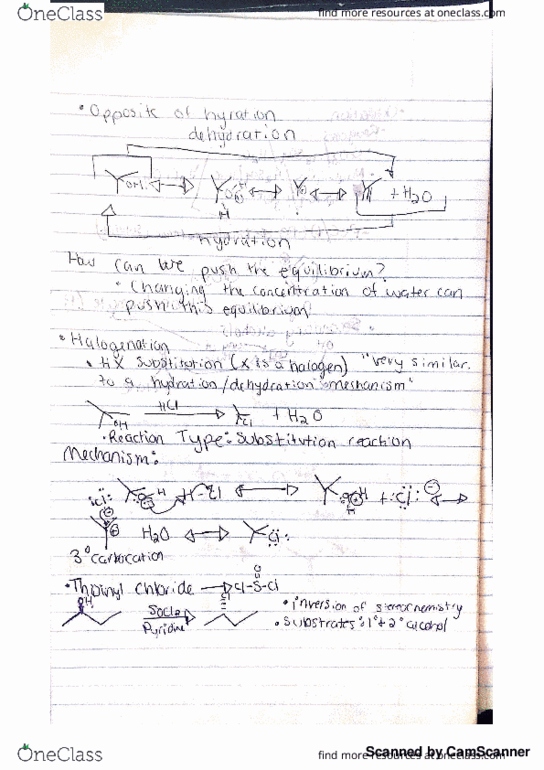 OneClass
find more resources at oneclass.com
• Opposite of hyration
dehydration
OH
H
+ H2O
hydration
How can we push the equilibrium?
• Changing the concentration of water can
push this equilibrium
• Halogenation
• HX substitution (X is a halogen) "very similar
to a hydration/dehydration mechanism"
HCl
OH
Cl
+ H2O
• Reaction Type: Substitution reaction
Mechanism:
H
H-Cl
+ :Cl:
H2O
3° carbocation
• Thoinyl chloride → Cl-S-Cl
OH
SOCl2
Pyridine
Cl
• inversion of stereochemistry
• Substrates: 1° + 2° alcohol
OneClass
find more resources at oneclass.com
Scanned by CamScanner